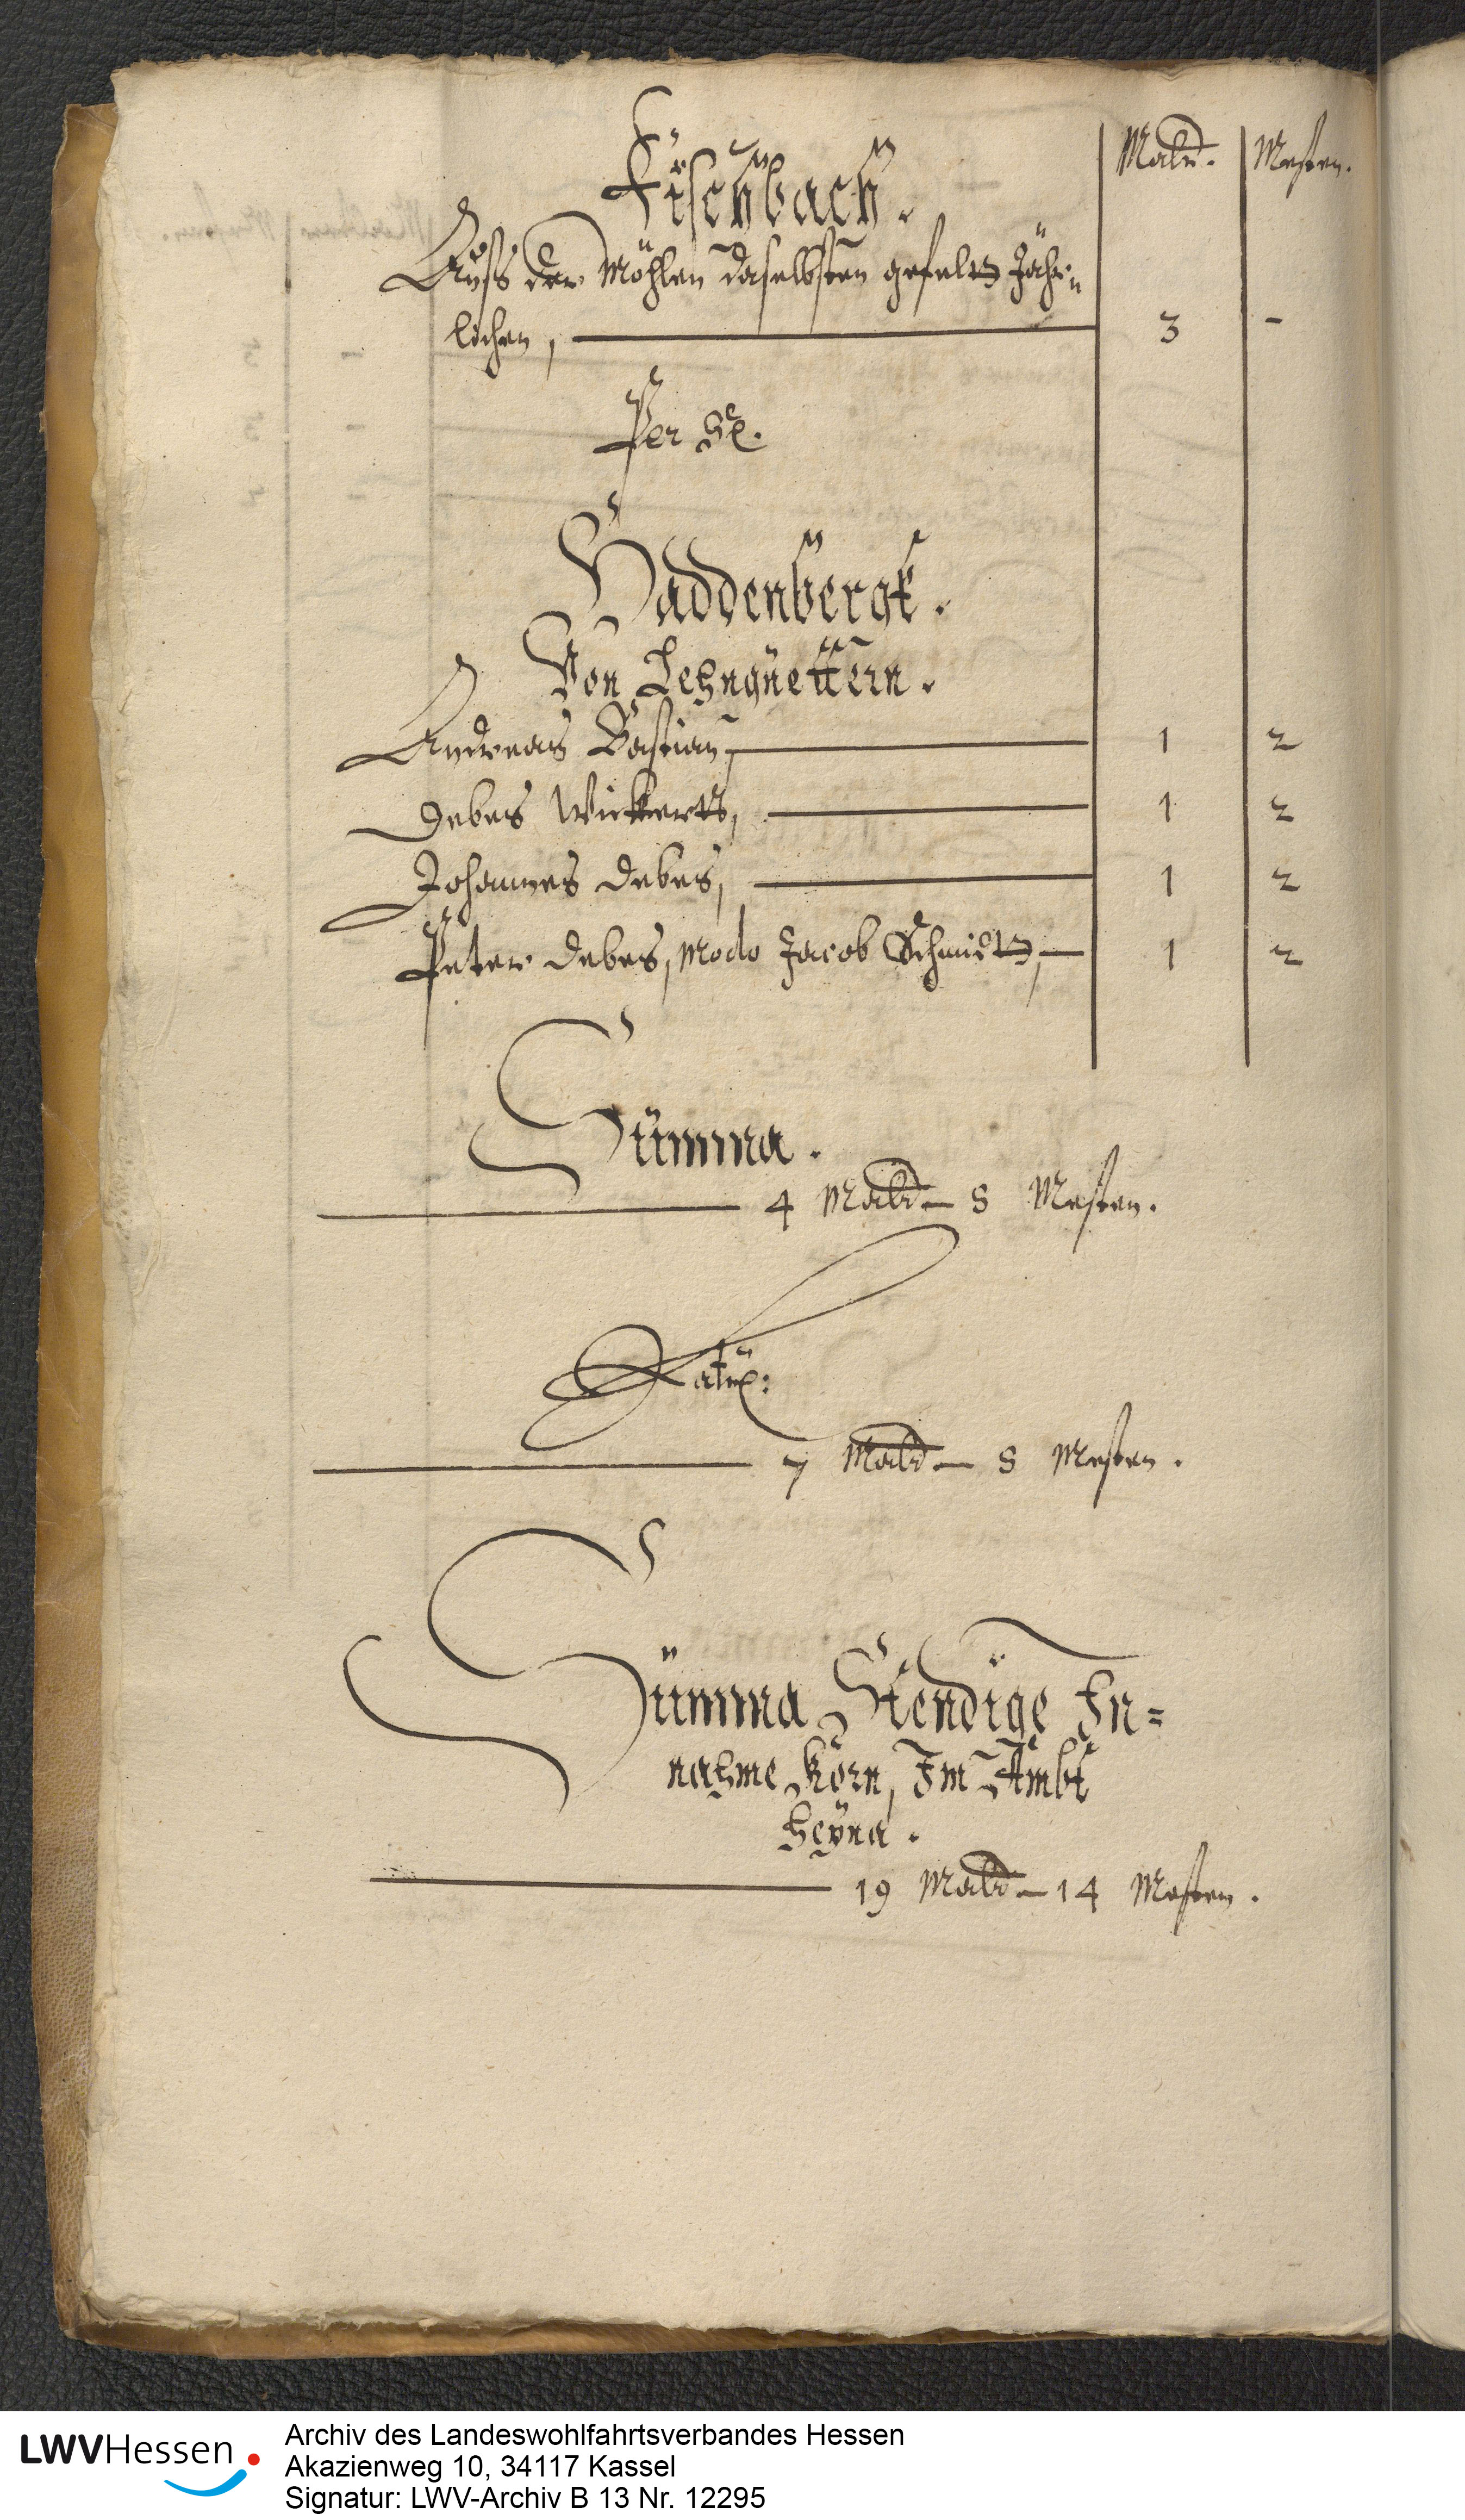 Mald. Mesten.
Fischbach.
Auß der Möhlen daselbsten gefelts Jähr-
lichen, 3 -
Per Se.
Haddenbergk.
Von Lehngüettern.
Andreas Bastian, 1 2
Debes Wickerts, 1 2
Johannes Debes, 1 2
Peter Debes, modo Jacob Schmidts, 1 2
Summa.
4 Mald - 8 Mesten.
Latus:
7 Mald - 8 Mesten.
Summa Stendige In=
nahme Korn, Im Ambt
Heyna.
19 Mald - 14 Mesten.
LWVHessen
Archiv des Landeswohlfahrtsverbandes Hessen
Akazienweg 10, 34117 Kassel
Signatur: LWV-Archiv B 13 Nr. 12295